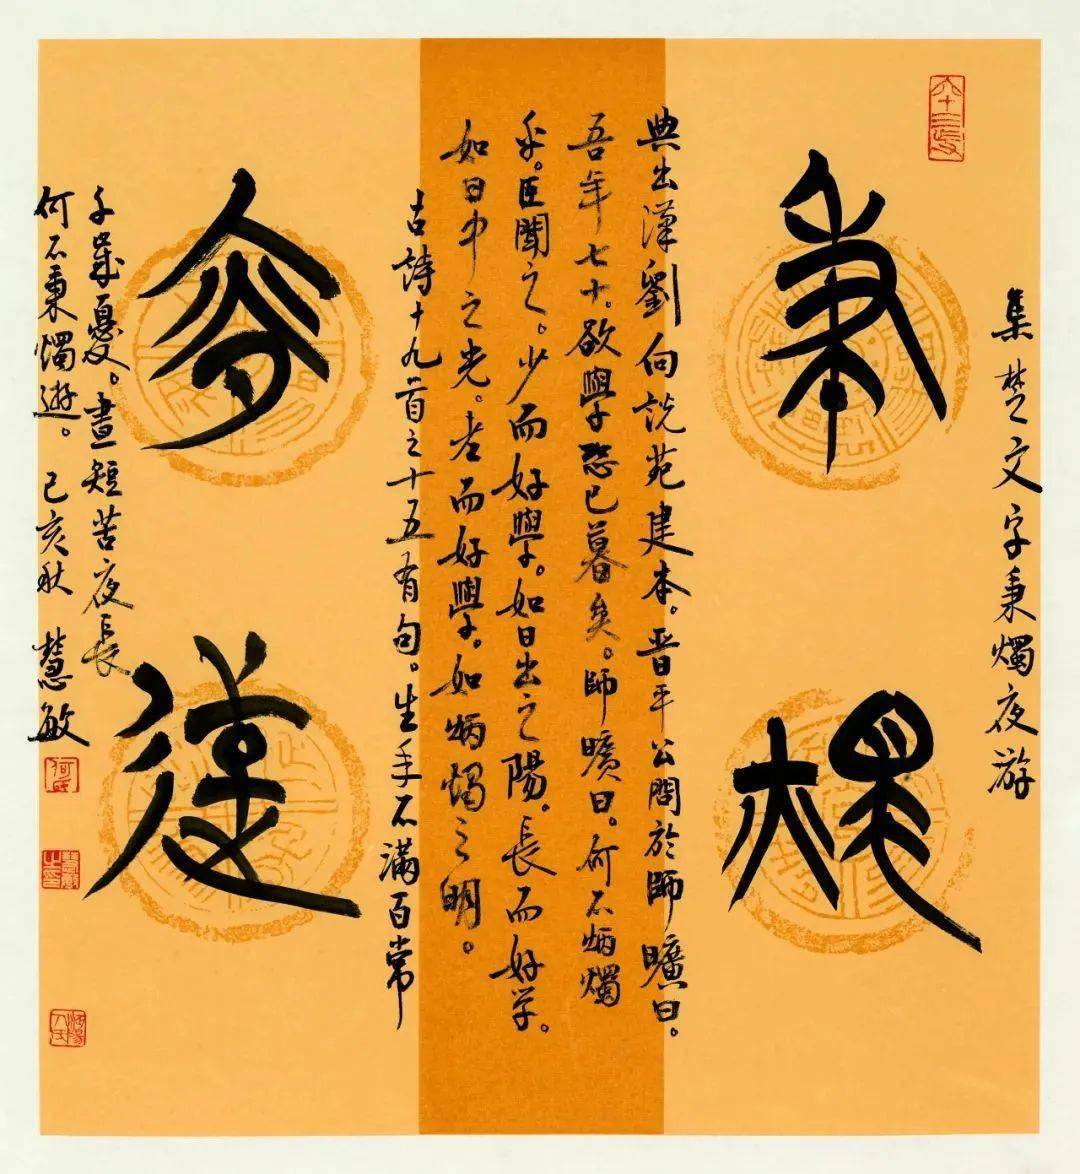 集楚文字秉燭夜游
秉燭
典出漢劉向説苑建本。晋平公問於師曠曰。
吾年七十。欲學恐已暮矣。師曠曰。何不炳燭
乎。臣聞之。少而好學。如日出之陽。長而好学。
如日中之光。老而好學。如炳燭之明。
古詩十九首之十五有句。生年不滿百常
夜遊
千歲憂。晝短苦夜長
何不秉燭遊。己亥秋 慧敏
何氏
慧敏之印